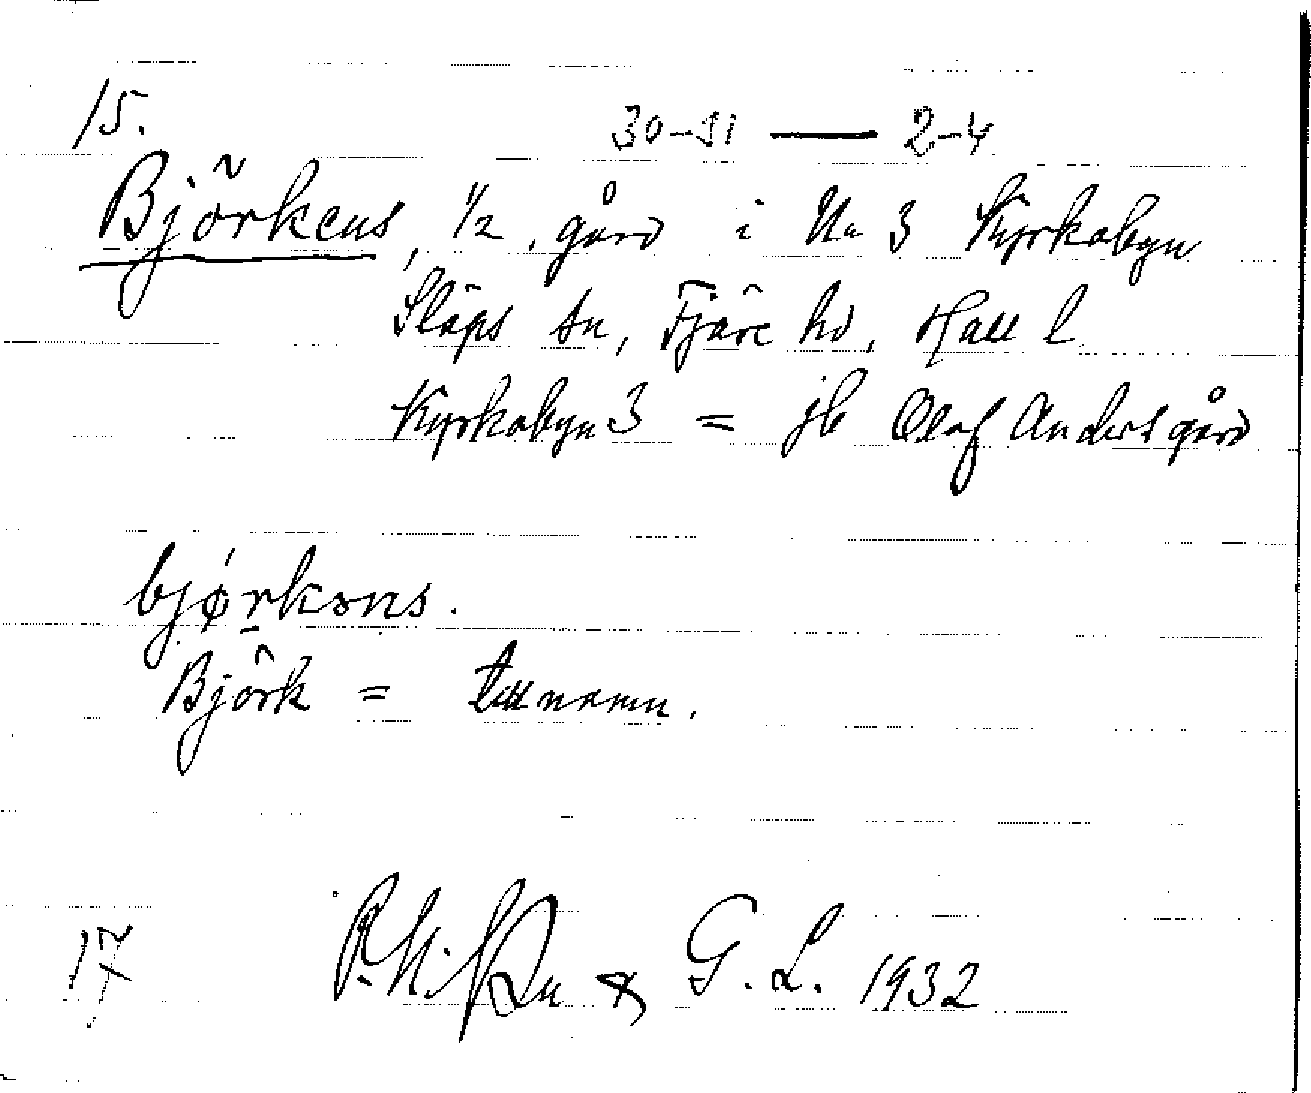 15.
30-31 — 2-4
Björkens, 1/2 gård i No 3 Kyrkobyn
Släps sn, Fjäre hd, Hall l
Kyrkobyn 3 = jb Olof Anders gård
bjørkəns.
Björk = tillnamn.
17 & G. L. 1932